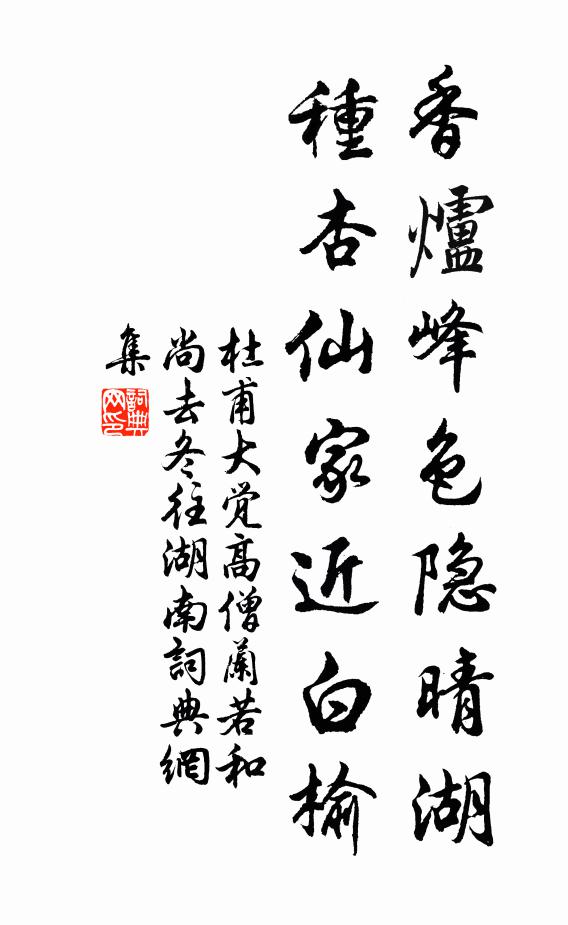 香爐峰色隐晴湖
種杏仙家近白榆
杜甫大觉高僧蘭若和
尚去冬往湖南詞典網
集
詞典
网印